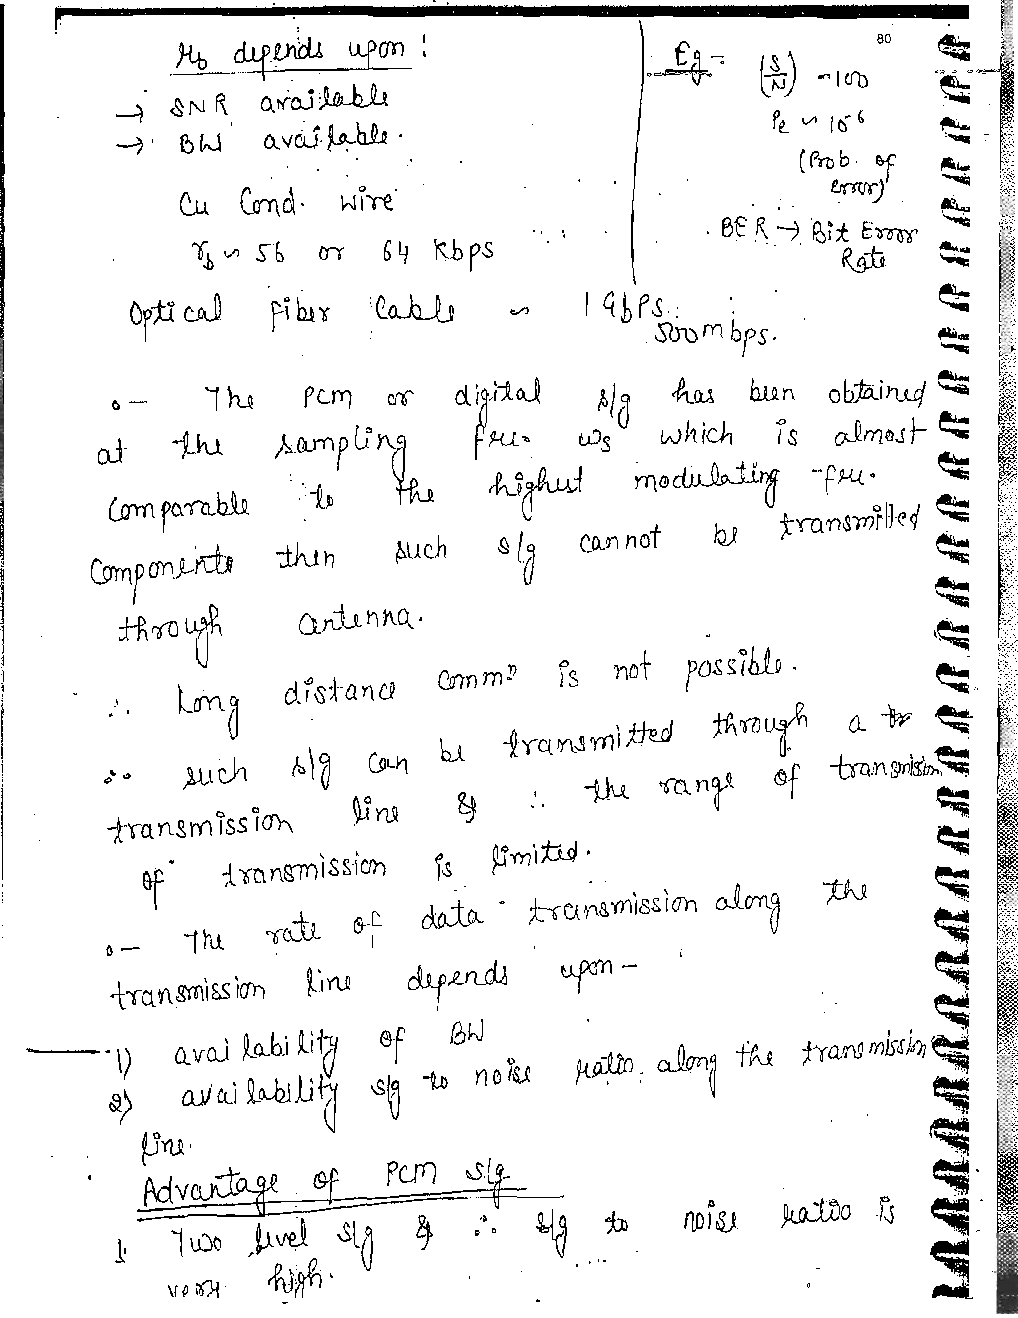 80
r_b depends upon :
→ SNR available
→ BW available.
Cu Cond. wire
r_b ~ 56 or 64 Kbps
Eg - (S/N) ~100
Pe ~ 10^-6
(Prob. of
error)
BER → Bit Error
Rate
Optical fiber Cable ~ 1 GbPs.
500 mbps.
o— The PCM or digital s/g has been obtained
at the sampling fre. ws which is almost
Comparable to the highest modulating fre.
Components then such s/g cannot be transmitted
through antenna.
∴ Long distance Commⁿ is not possible.
∵ such s/g can be transmitted through a tr
transmission line & ∴ the range of transmission
of transmission is limited.
o— The rate of data transmission along the
transmission line depends upon -
1) availability of BW
2) availability s/g to noise ratio. along the transmission
line.
Advantage of PCM s/g
1. Two level s/g & ∴ s/g to noise ratio is
very high.